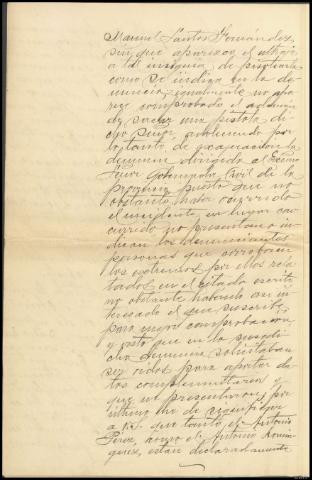 Manuel Santos Fernandez
sin que aparezca el ultraje
a la insignia de
como se indica en la de-
nuncia; igualmente no apa-
rece comprobado el ademan
de sacar una pistola di-
cho Señor, adoleciendo por
lo tanto de exageracion la
denuncia dirigida al Excmo
Señor Gobernador Civil de la
provincia puesto que no
obstante haber ocurrido
el incidente en lugar con-
currido no presentan o in-
dican los denunciantes
personas que corroboren
los extremos por ellos rela-
tados en el citado escrito
no obstante haberlo asi in-
teresado el que suscribe
para mejor comprobacion
y visto que en la
cha denuncia solicitaban
ser oidos para aportar da-
tos complementarios y
que no presentaron; por
ultimo he de significar
a V.E. que tanto el Antonio
Perez, como el Antonio Domin-
guez, estan declaradamente